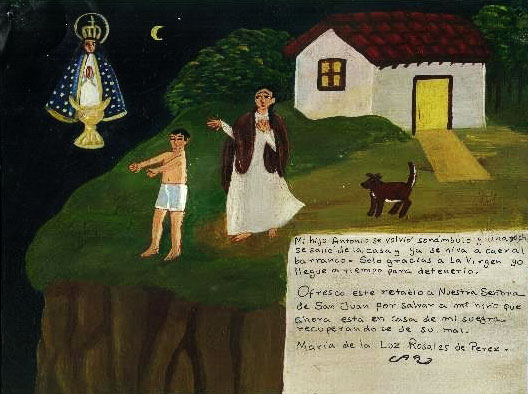 Mi hijo Antonio se volvio sonámbulo y una noch
se salio de la casa y ya se niva a caer al
barranco - Solo gracias a La Virgen yo
llegue a tiempo para detenerlo.
Ofresco este retablo a Nuestra Señora
de San Juan por salvar a mi niño que
ahora está en casa de mi suegra
recuperandose de su mal.
María de la Luz Rosales de Perez.